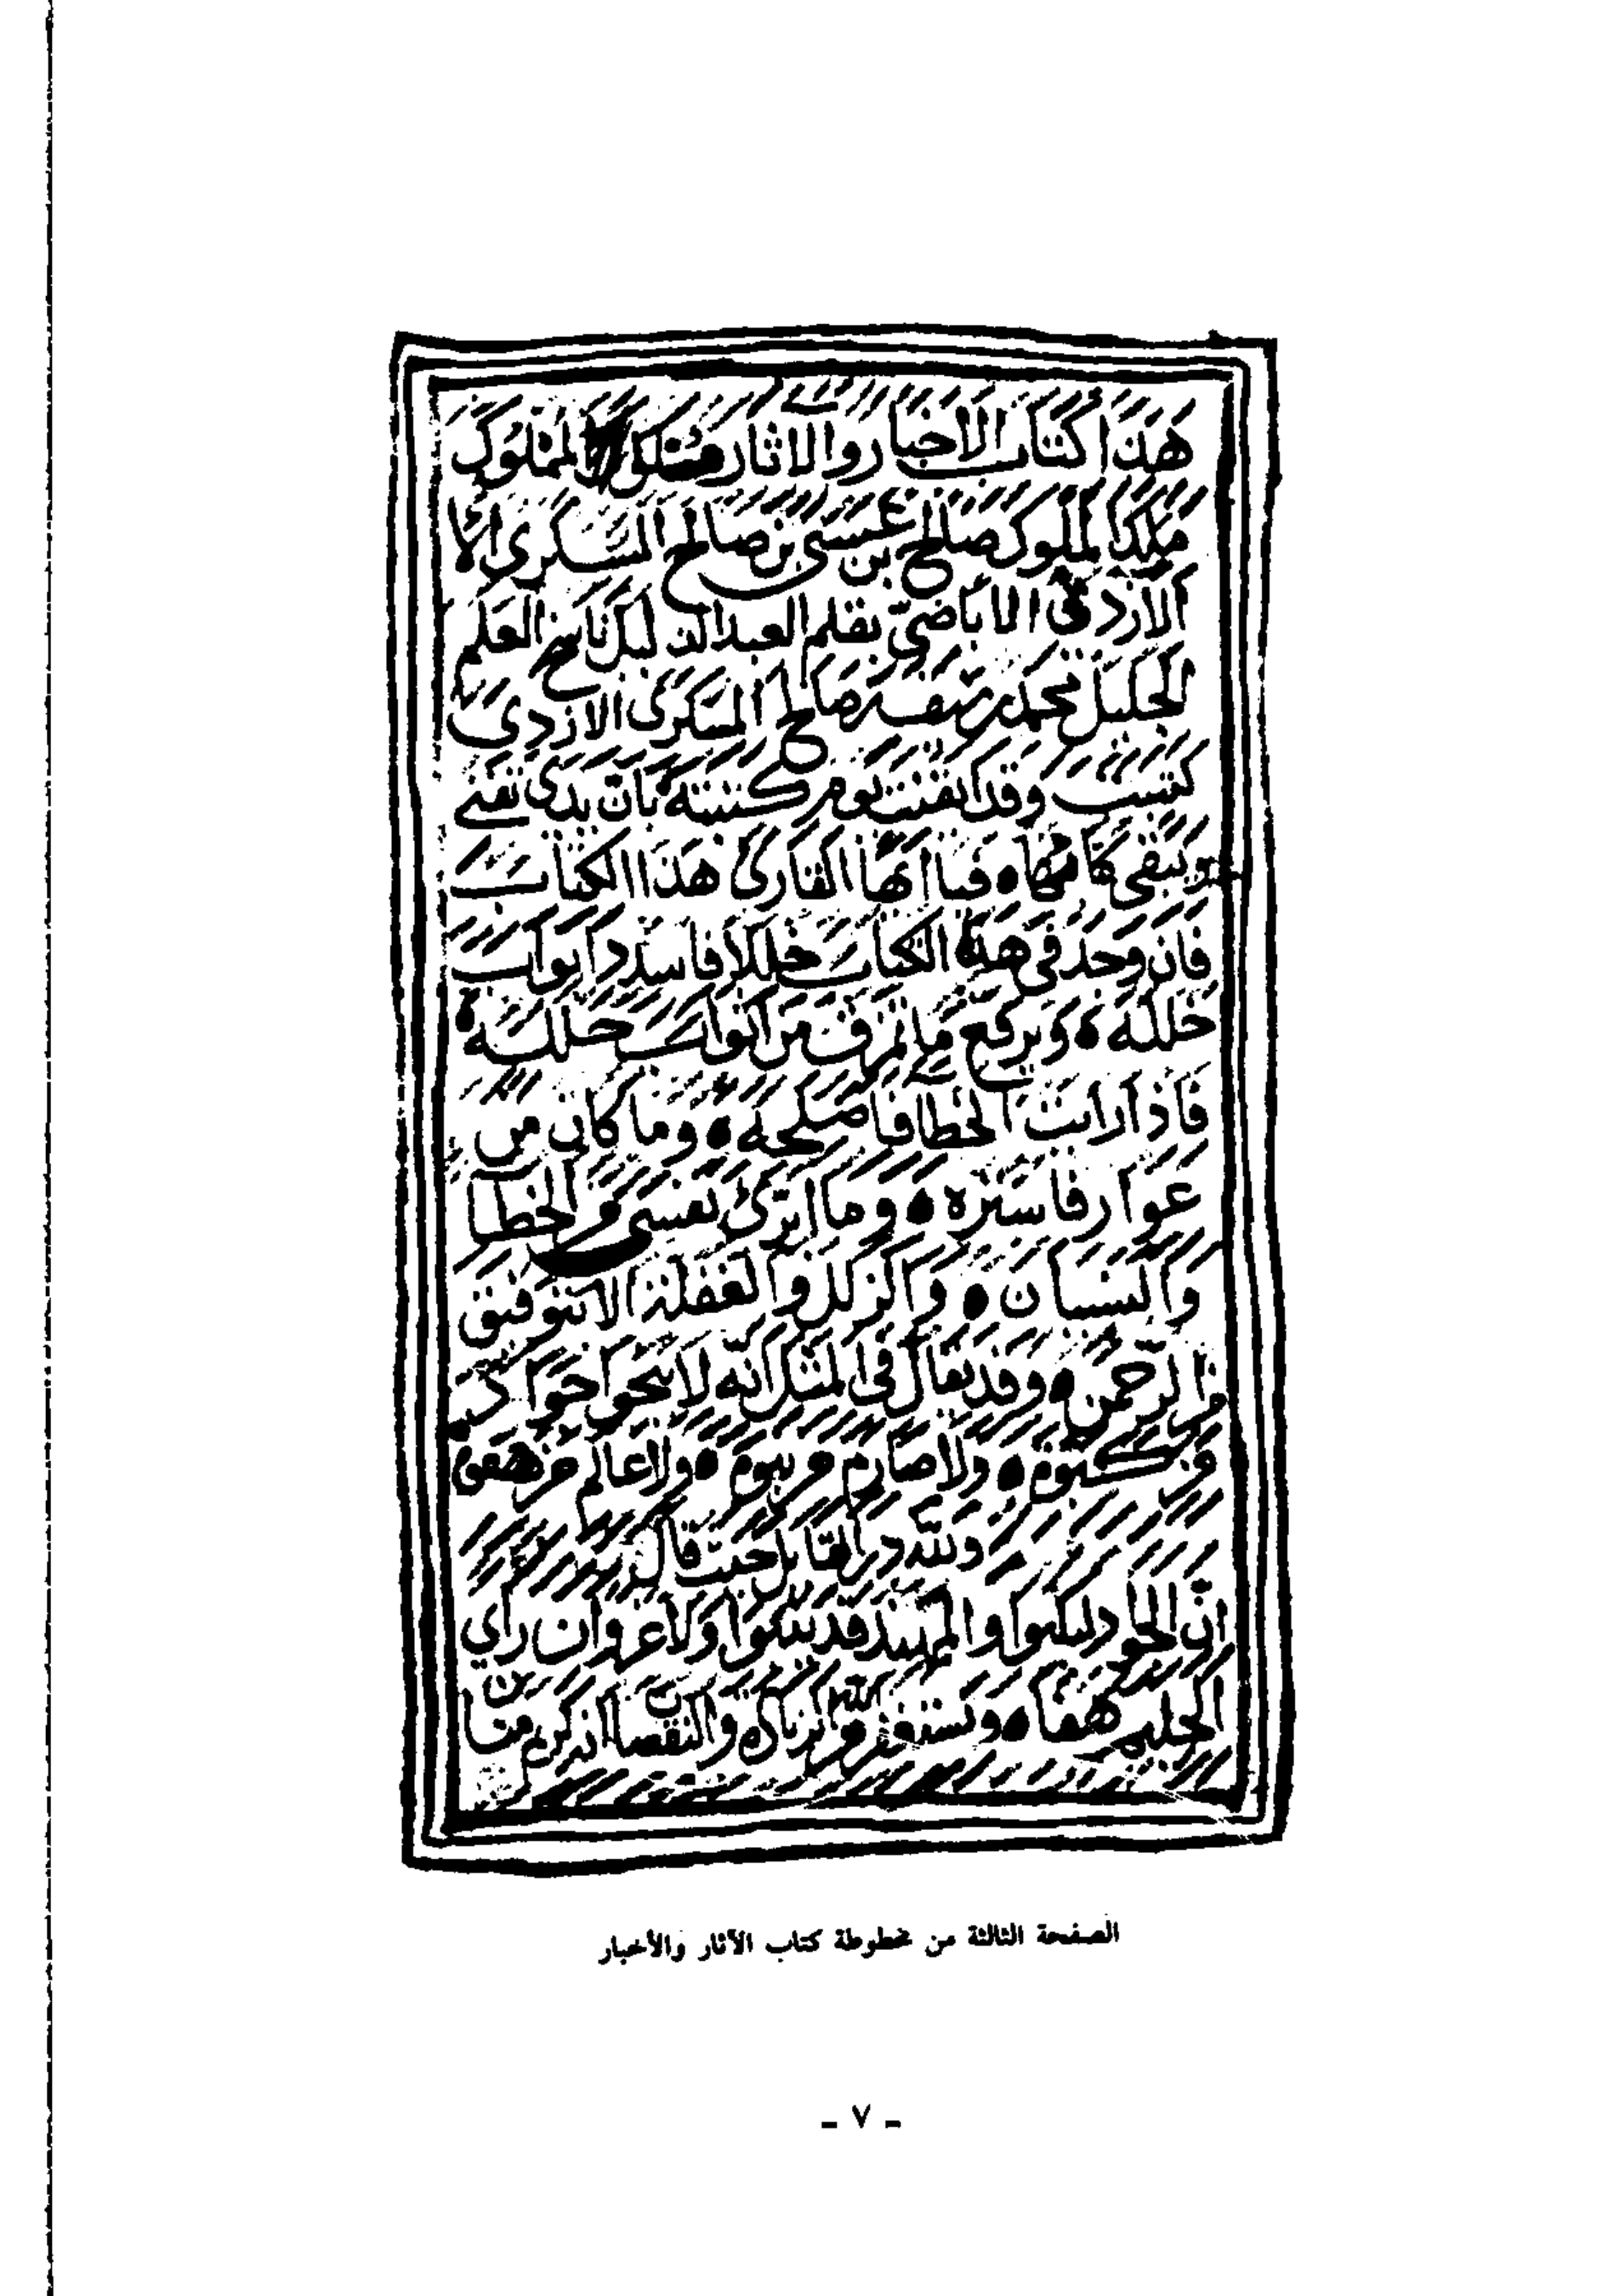 هذا كتاب الاخبار والاثار المملوك
ملك الملوك صالح بن عيسى بن صالح السكري الا
الازدي الاباضي بقلم العبد الذليل ناسخ العلم
الجليل محمد بن صالح السكري الازدي
كتبت وقد ايقنت يوم كتبته بان يدي تفنى
ويبقى كتابها ٥ فيا ايها القارئ هذا الكتاب
فان وجد في هذه الكتاب خللا فاسدد ابواب
خلله ٥ ويرقع ما تمزق من اثواب حلله ٥
فاذا رايت الخطا فاصلحه ٥ وما كان من
عوار فاستره ٥ وما ابرئ نفسي من الخطا
والنسيان ٥ والزلل والغفلة الا بتوفيق
من الرحمن ٥ وقد يقال في المثل انه لا ينجوا جواد
من كبوة ٥ ولا صارم من نبوة ٥ ولا عالم من هفوة
ولله در القايل حيث قال
ان الجواد ليكبوا والمهند قد ينبوا ولا غرو ان راي
الحليم هفا ٥ ونستغفر الله من الزيادة والنقصان انه كريم منان
الصفحة الثالثة من مخطوطة كتاب الآثار والأخبار
- ٧ -